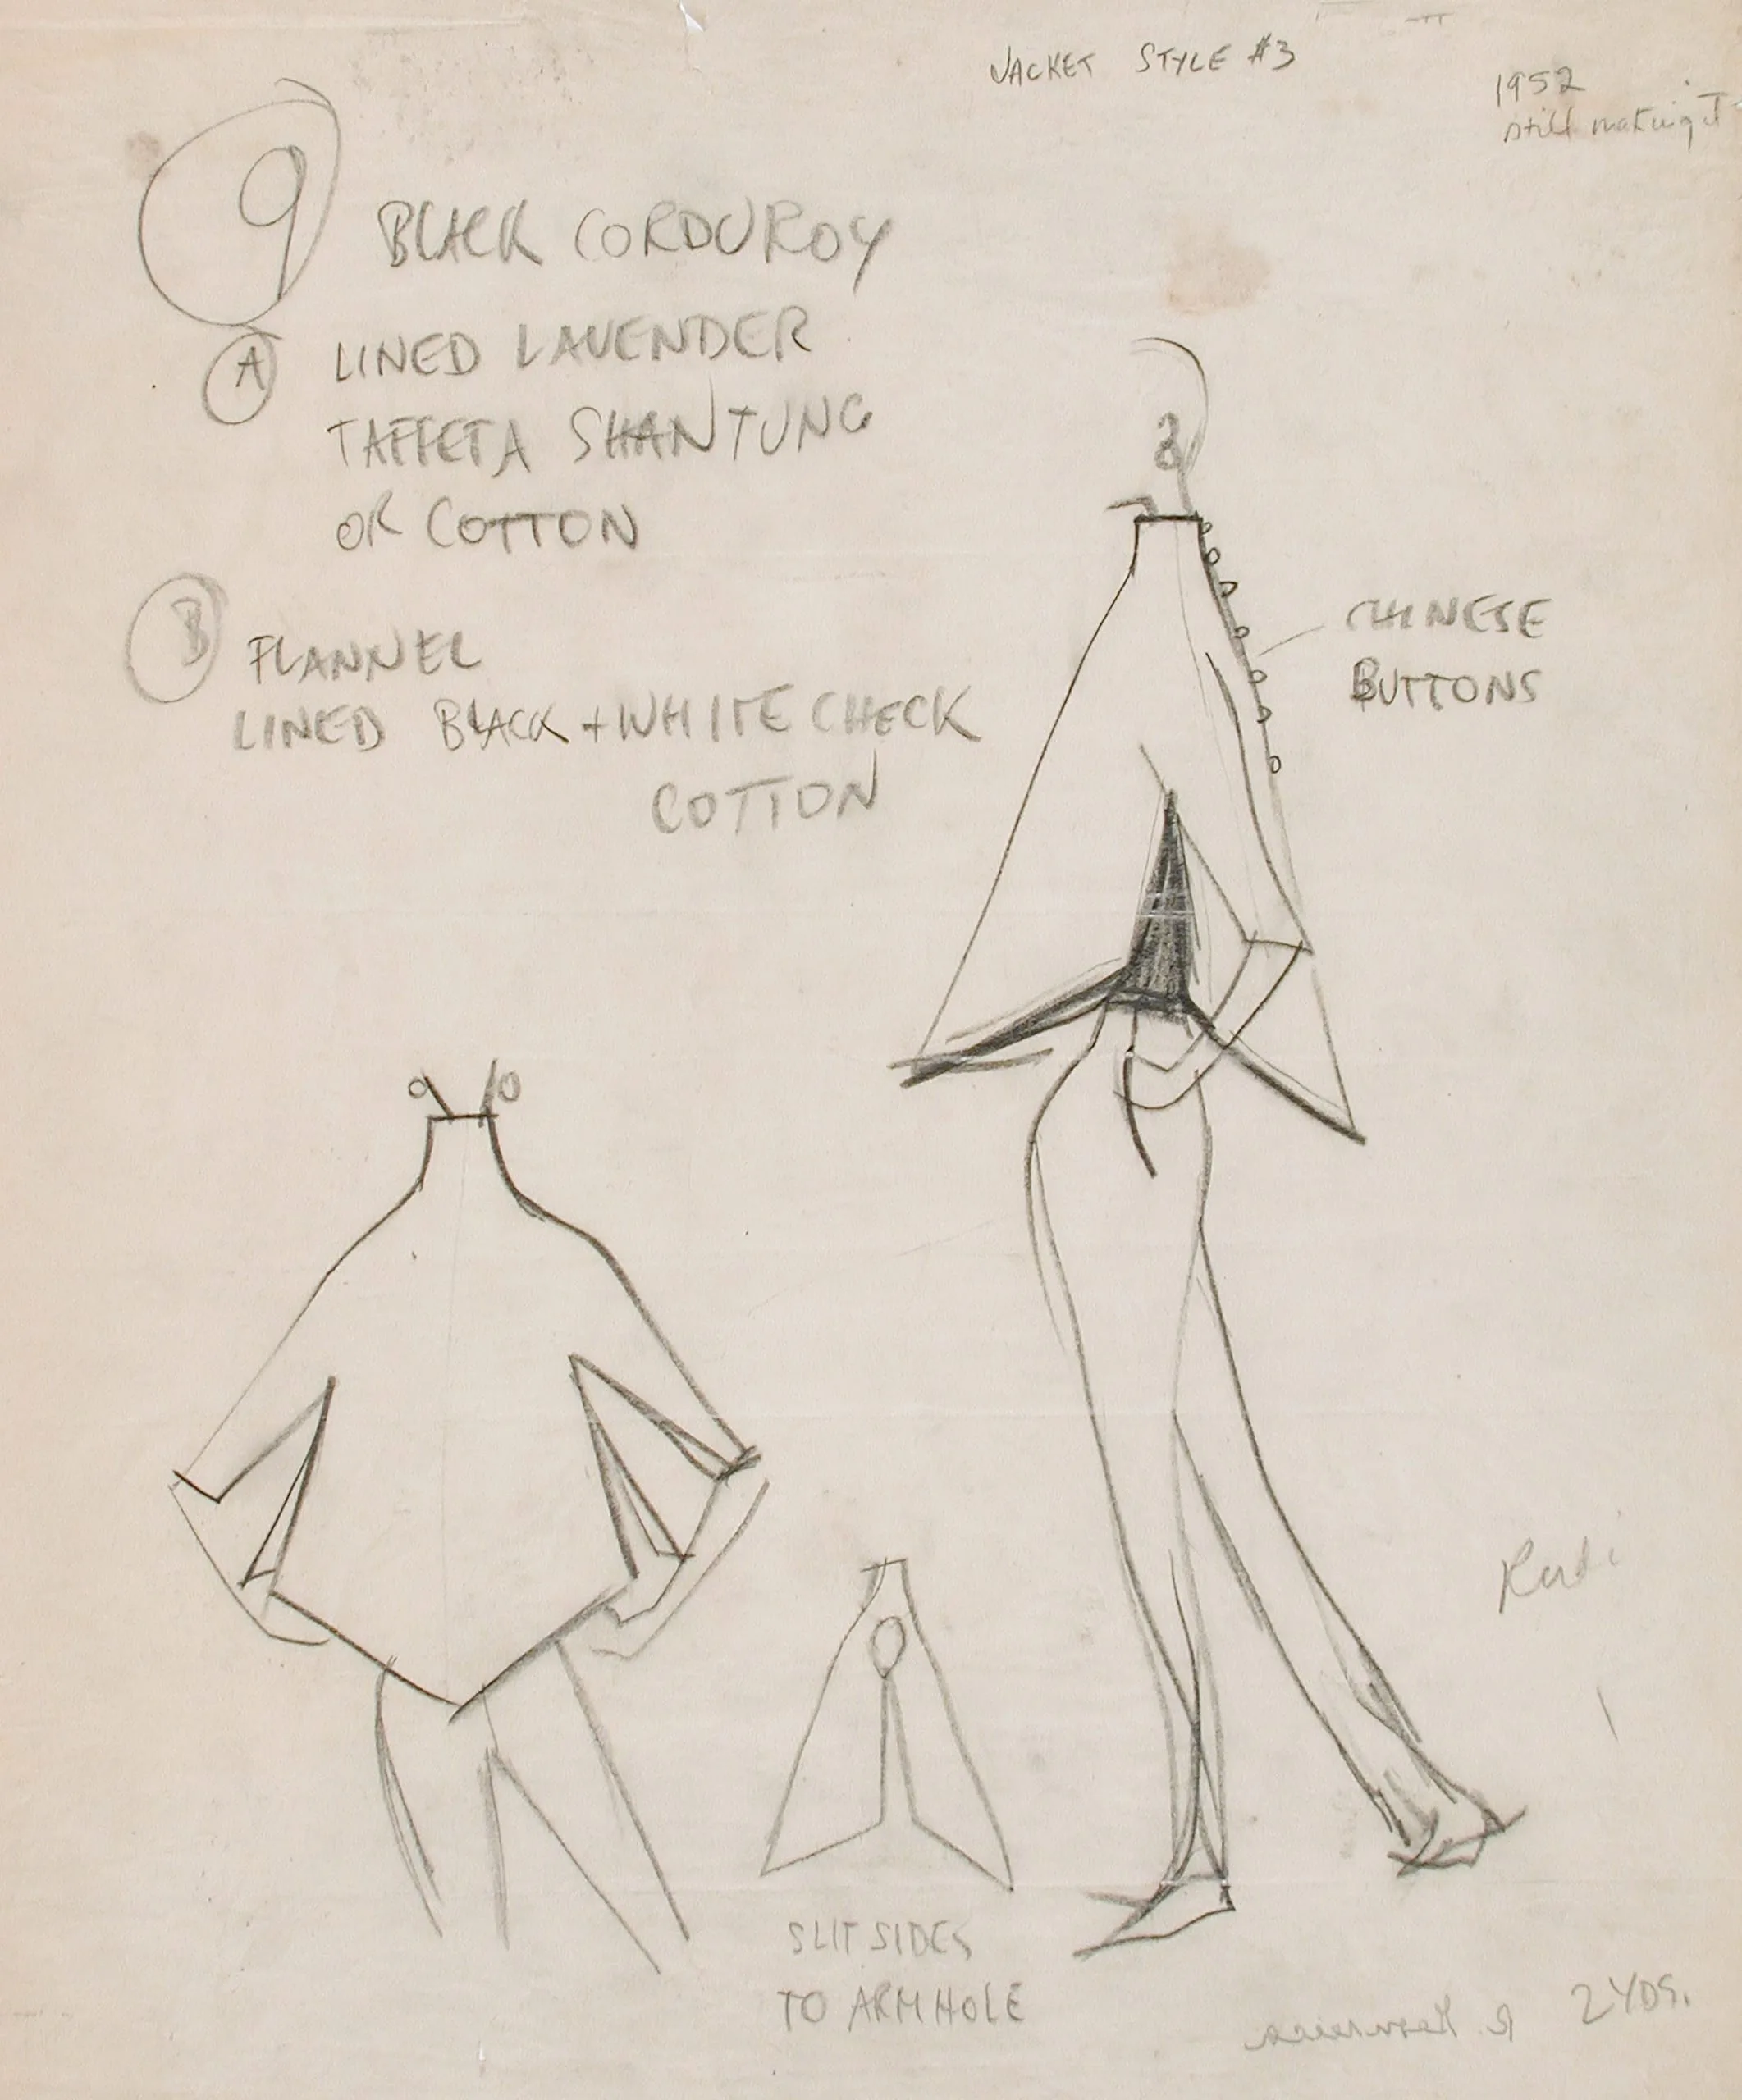 JACKET STYLE #3
1952
still making it
9
BLACK CORDUROY
A
LINED LAVENDER
TAFFETA SHANTUNG
OR COTTON
B
FLANNEL
LINED BLACK + WHITE CHECK
COTTON
CHINESE
BUTTONS
Rudi
SLIT SIDES
TO ARMHOLE
2 YDS.